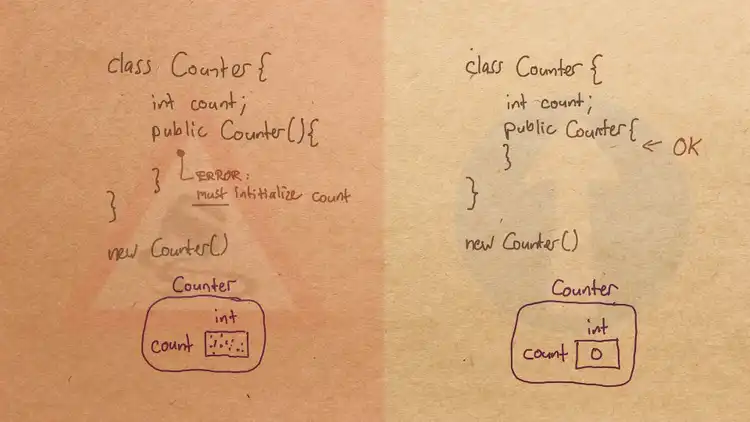 class Counter {
int count;
public Counter(){
}
ERROR:
must intitialize count
}
new Counter()
Counter
int
count
class Counter {
int count;
public Counter{
}
← OK
}
new Counter()
Counter
int
count 0